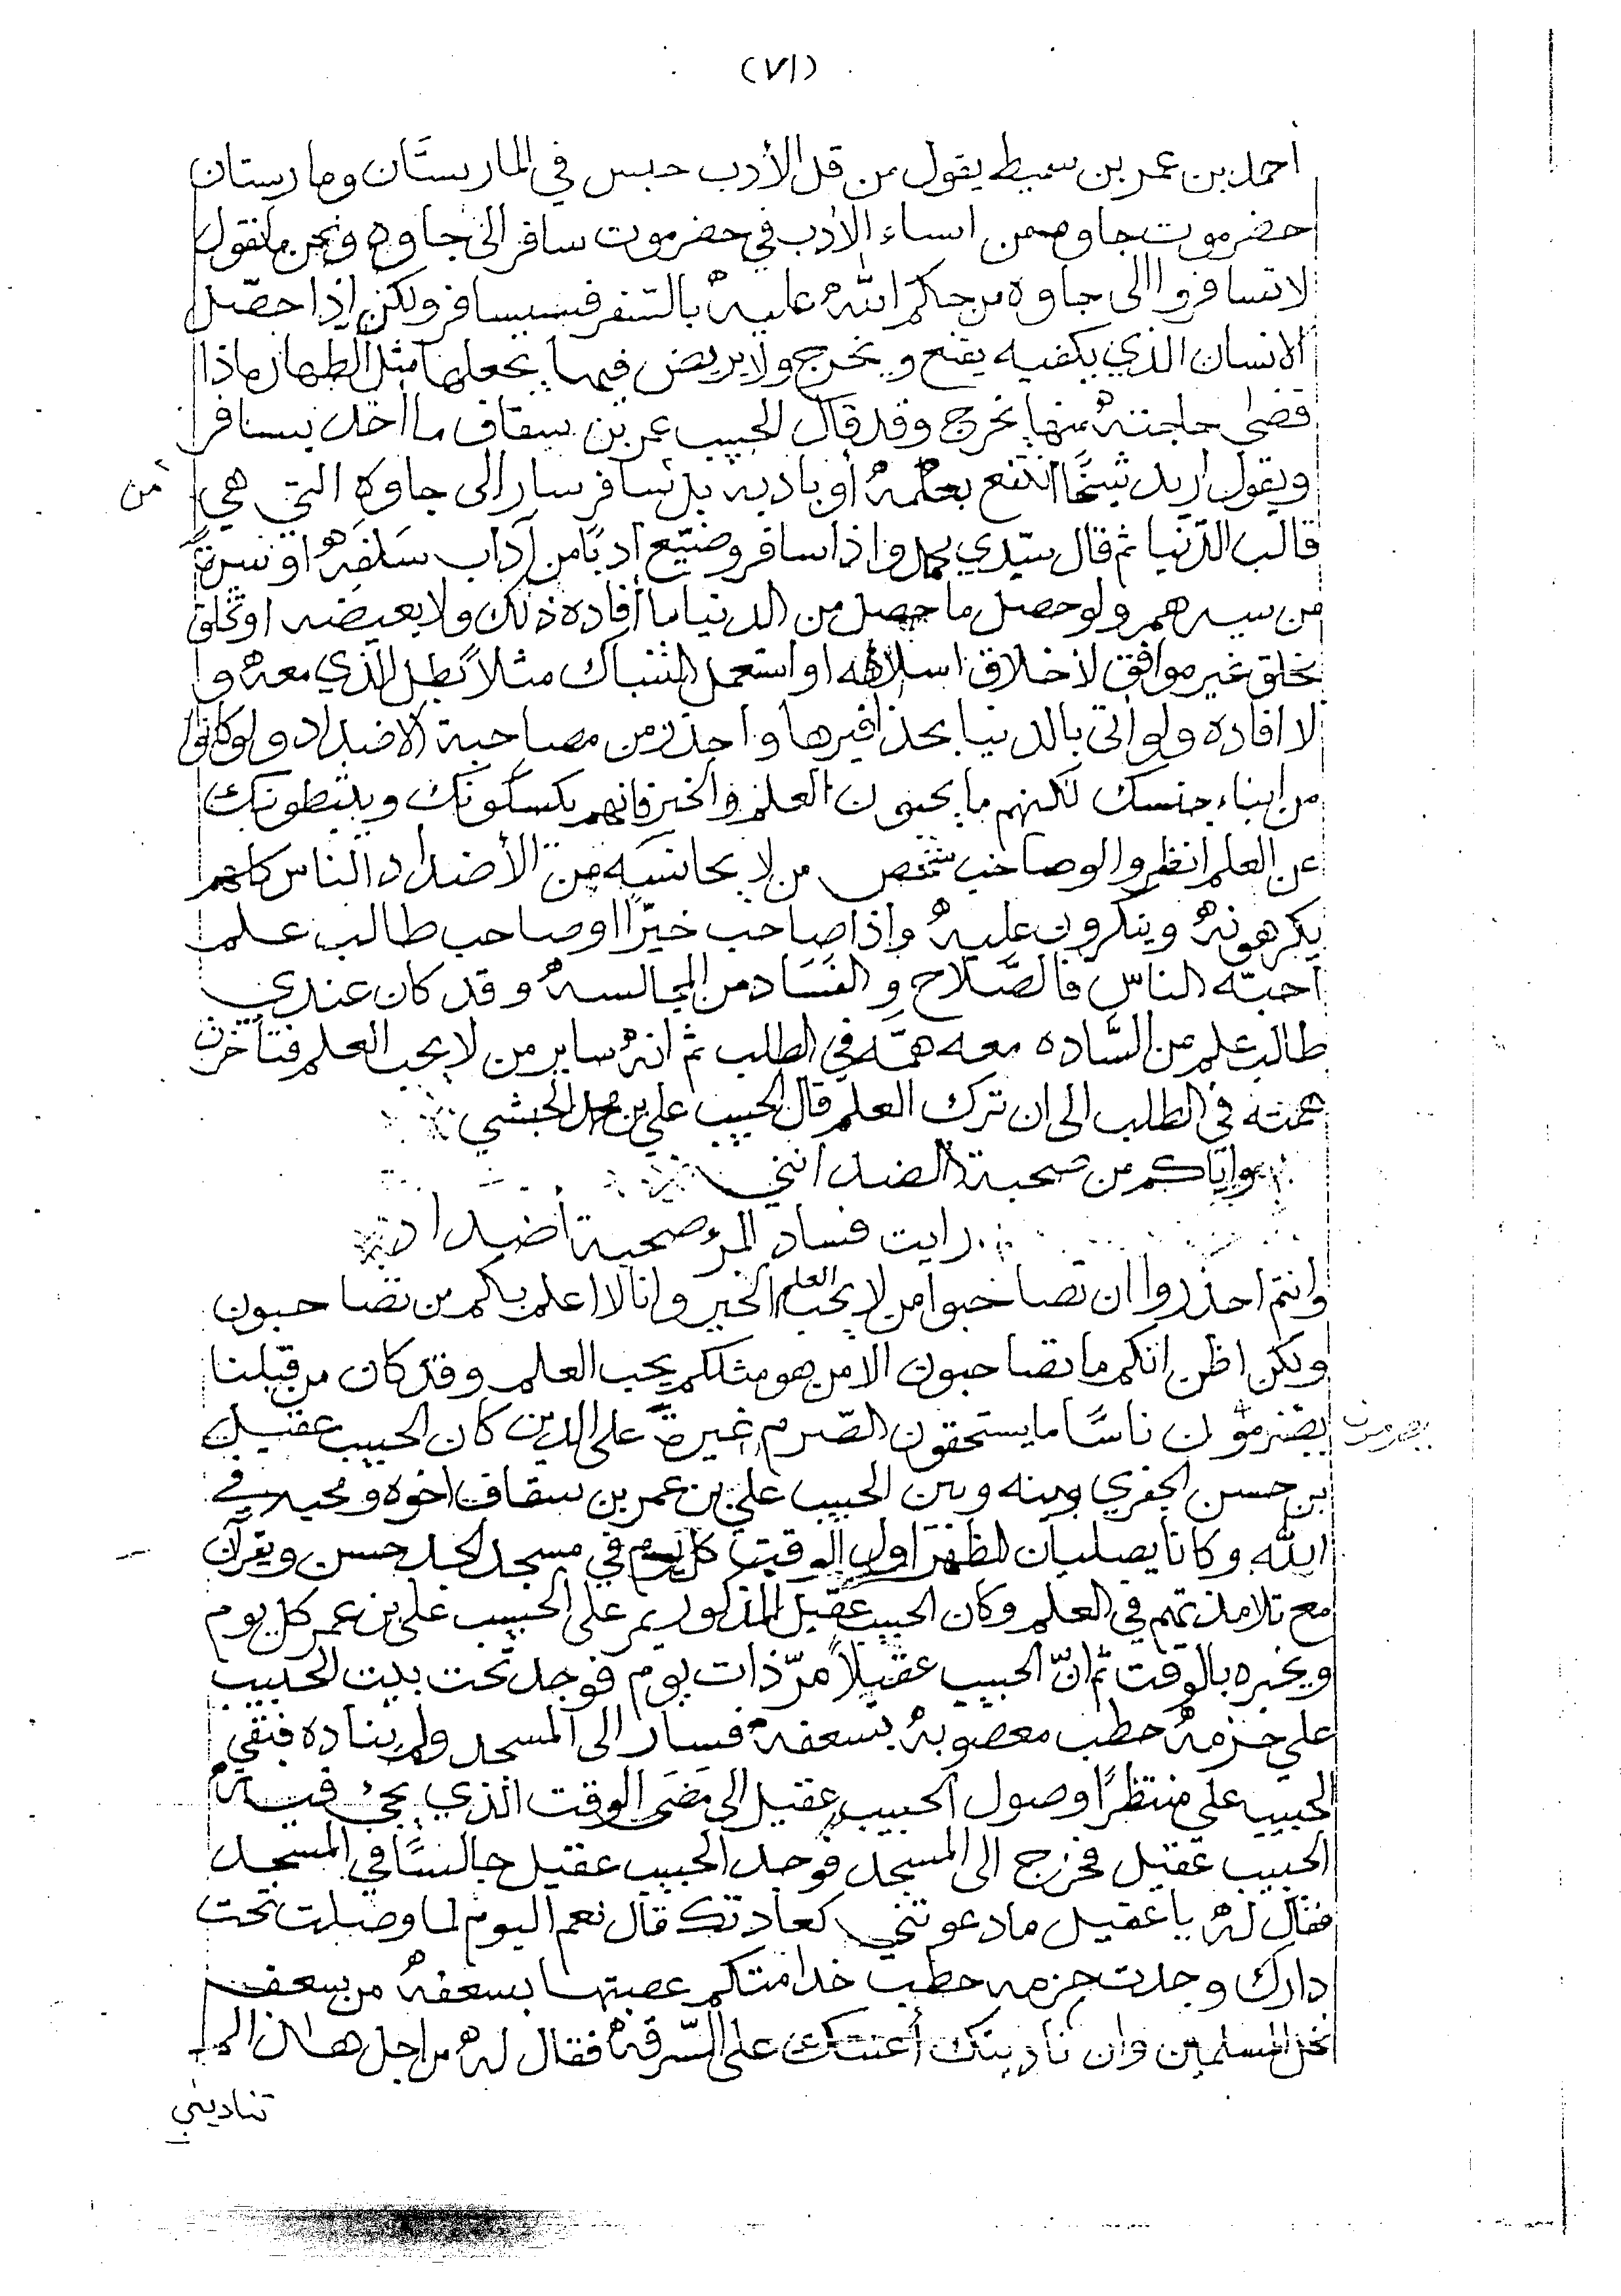 (٧١)
أحمد بن عمر بن سميط يقول من قل الأدب حبس في المارستان ومارستان
حضرموت جاوه من اساء الادب في حضرموت سافر الى جاوه ونحن ما نقول
لا تسافروا الى جاوه من حكم الله عليه بالسفر فسيسافر ولكن إذا حصّل
الانسان الذي يكفيه يقنع ويخرج ولا يربض فيها يجعلها مثل الطهار ماذا
قضى حاجته منها يخرج وقد قال الحبيب عمر بن سقاف ما احد يسافر
ويقول اريد شيخًا انتفع بعلمه أو بادبه بل سافر سار الى جاوه التي هي من
قالب الدّنيا ثم قال سيّدي محمد واذا سافر وضيّع أدبًا من آداب سَلفِه او سيرةً
من سيرهم ولو حصل ما حصل من الدنيا ما أفاده ذلك ولا يعيضه او تخلق
بخلق غير موافق لأخلاق اسلافه او استعمل الشباك مثلاً بطل الذي معه و
لا افاده ولو اتى بالدنيا بحذافيرها واحذر من مصاحبة الاضداد ولو كانوا
من ابناء جنسك لكنهم ما يحبون العلم والخير فانهم يكسلونك ويثبطونك
عن العلم انظروا لو صاحب شخص من لا يجانسَه من الأضداد الناس كلهم
يكرهونه وينكرون عليه واذا صاحب خيّرًا او صاحب طالب علم
احبّه الناس فالصَّلاح والفسَاد من المجالسه وقد كان عندي
طالب علم من السَّاده معه همّه في الطلب ثم انه ساير من لا يحب العلم فتأخرت
همته في الطلب الى ان ترك العلم قال الحبيب علي بن محمد الحبشي
واياكم من صحبة الضد انني
رايت فساد المرء صحبة اضداد
وانتم احذروا ان تصاحبوا من لا يحب العلم الخير وانا لا اعلم بكم من تصاحبون
ولكن اظن انكم ما تصاحبون الا من هو مثلكم يحب العلم وقد كان من قبلنا
يصرمون ناسًا ما يستحقون الصّرم غيرة على الدين كان الحبيب عقيل
بن حسن الجفري بينه وبين الحبيب علي بن عمر بن سقاف اخوه ومحبه في
الله وكانا يصليان الظهر اول الوقت كل يوم في مسجد الجد حسن ويقرآن
مع تلامذتهم في العلم وكان الحبيب عقيل المذكور يمر على الحبيب علي بن عمر كل يوم
ويخبره بالوقت ثم انّ الحبيب عقيلاً مرّ ذات يوم فوجد تحت بيت الحبيب
علي حزمه حطب معصوبه بسعفه فسار الى المسجد ولم يناده فبقي
الحبيب علي منتظرًا وصول الحبيب عقيل الى مَضَى الوقت الذي يجئ فيه
الحبيب عقيل فخرج الى المسجد فوجد الحبيب عقيل جالسًا في المسجد
فقال له يا عقيل ما دعوتني كعادتك قال نعم اليوم لما وصلت تحت
دارك وجدت حزمه حطب خدامتكم عصبتها بسعفه من سعف
نخل المسلمين وان ناديتك أعنتك على السّرقه فقال له من اجل هذا لم
تناديني